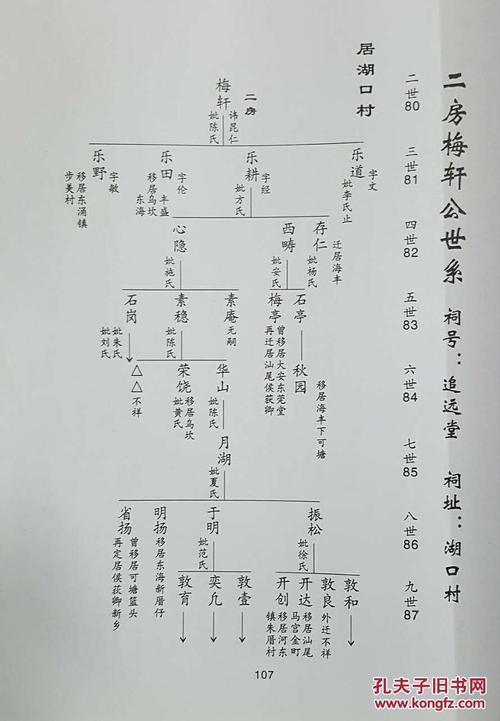 二房梅轩公世系 祠号：追远堂 祠址：湖口村
二世80
三世81
四世82
五世83
六世84
七世85
八世86
九世87
居湖口村
二房
梅轩
讳昆仁
妣陈氏
乐道
字文
妣李氏止
乐耕
字经
妣方氏
乐田
字伦
丰盛
移居乌坎
东海
乐野
字敏
移居东涌镇
步美村
存仁
迁居海丰
妣杨氏
西畴
妣安氏
心隐
妣施氏
石亭
梅亭
曾移居大安东莞堂
再迁居汕尾侯获卿
素庵
无嗣
素稳
妣陈氏
石岗
妣朱氏
妣刘氏
秋园
移居海丰下可塘
华山
妣陈氏
荣饶
移居乌坎
妣黄氏
△△
不祥
月湖
妣夏氏
振松
妣徐氏
于明
妣范氏
明扬
移居东海新厝仔
省扬
曾移居可塘篮头
再定居侯获卿新乡
敦和
敦良
外迁不祥
开达
移居汕尾
马宫金町
开创
移居河东
镇朱厝村
敦壹
奕几
敦育
107
孔夫子旧书网
kongfz.com